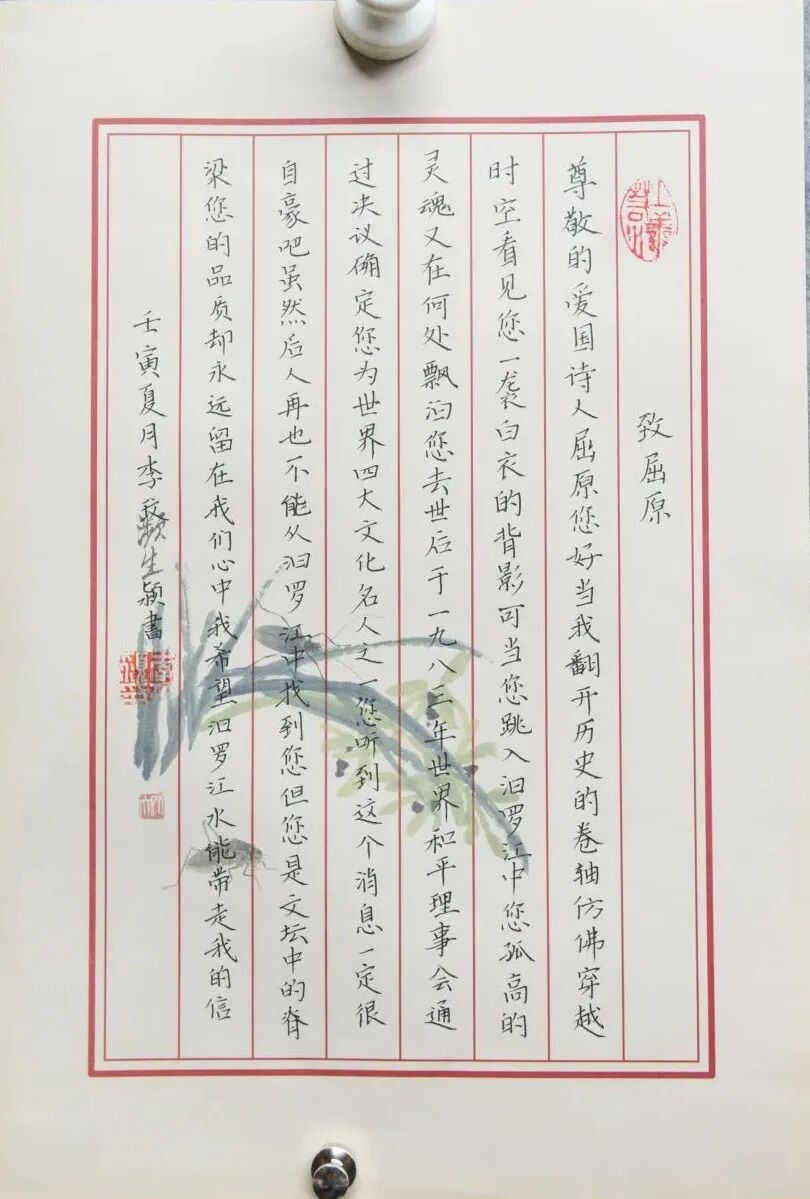 致屈原
尊敬的爱国诗人屈原您好当我翻开历史的卷轴仿佛穿越
时空看见您一袭白衣的背影可当您跳入汩罗江中您孤高的
灵魂又在何处飘泊您去世后于一九八三年世界和平理事会通
过决议确定您为世界四大文化名人之一您听到这个消息一定很
自豪吧虽然后人再也不能从汩罗江中找到您但您是文坛中的脊
梁您的品质却永远留在我们心中我希望汩罗江水能带走我的信
壬寅夏月李 生颖書